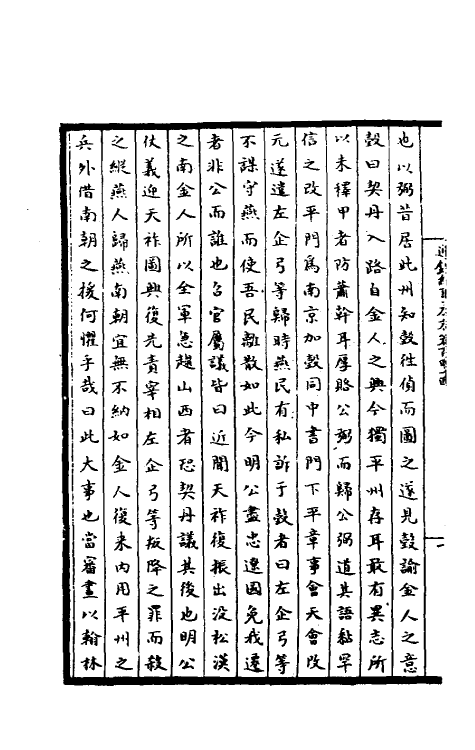 也以弼昔居此州知瑴往偵而圖之遂見瑴諭金人之意
瑴曰契丹八路自金人之興今獨平州存耳敢有異志所
以未釋甲者防蕭幹耳厚賂公弼而歸公弼道其語黏罕
信之改平門爲南京加瑴同中書門下平章事會天會改
元遂遣左企弓等歸時燕民有私訴于瑴者曰左企弓等
不謀守燕而使吾民離散如此今明公盡忠遼國免我遷
者非公而誰也召官屬議皆曰近聞天祚復振出没松漠
之南金人所以全軍急趨山西者恐契丹議其後也明公
仗義迎天祚圖興復先責宰相左企弓等叛降之罪而殺
之縱燕人歸燕南朝宜無不納如金人復来内用平州之
兵外借南朝之援何懼乎哉曰此大事也當審畫以翰林